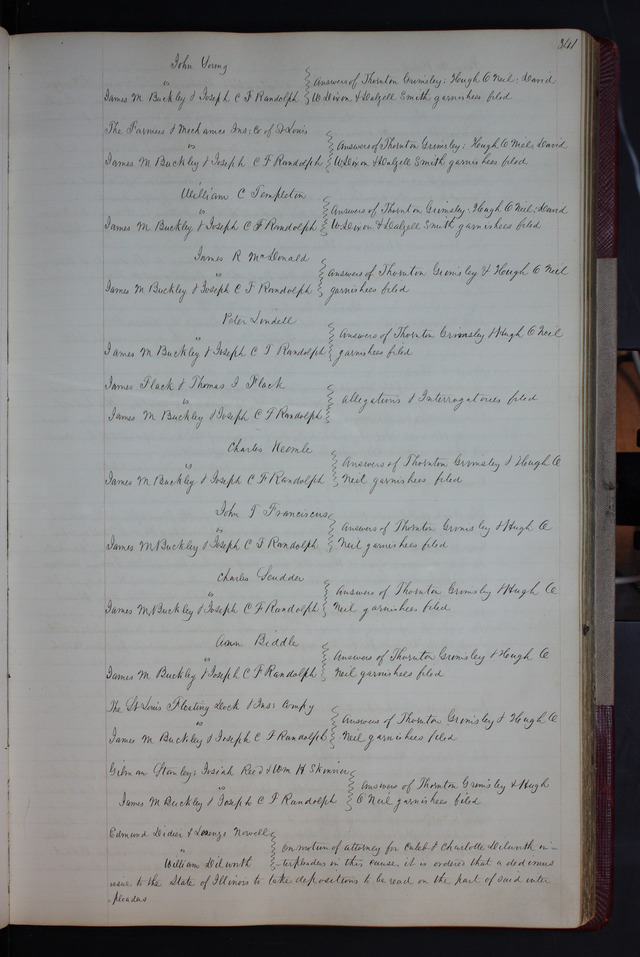 341
John Young
vs
James M Buckley & Joseph C F Randolph
Answers of Thornton Grimsley; Hough O Neil; David
W Dixon & Dalzell Smith garnishees filed
The Farmers & Mechanics Ins: Co of St Louis
vs
James M Buckley & Joseph C F Randolph
Answers of Thornton Grimsley; Hough O Neil; David
W Dixon & Dalzell Smith garnishees filed
William C Templeton
vs
James M Buckley & Joseph C F Randolph
Answers of Thornton Grimsley; Hough O Neil; David
W Dixon & Dalzell Smith garnishees filed
James R McDonald
vs
James M Buckley & Joseph C F Randolph
Answers of Thornton Grimsley & Hough O Neil
garnishees filed
Peter Lindell
vs
James M Buckley & Joseph C F Randolph
Answers of Thornton Grimsley & Hugh O Neil
garnishees filed
James Flack & Thomas J Flack
vs
James M Buckley & Joseph C F Randolph
Allegations & Interrogatories filed
Charles Keemle
vs
James M Buckley & Joseph C F Randolph
Answers of Thornton Grimsley & Hough O
Neil garnishees filed
John T Franciscus
vs
James M Buckley & Joseph C F Randolph
Answers of Thornton Grimsley & Hugh O
Neil garnishees filed
Charles Scudder
vs
James M Buckley & Joseph C F Randolph
Answers of Thornton Grimsley & Hugh O
Neil garnishees filed
Ann Biddle
vs
James M Buckley & Joseph C F Randolph
Answers of Thornton Grimsley & Hough O
Neil garnishees filed
The St Louis Floating Dock & Ins: Compy
vs
James M Buckley & Joseph C F Randolph
Answers of Thornton Grimsley & Hough O
Neil garnishees filed
Gilman Stanley; Josiah Reed & Wm H Skinner
vs
James M Buckley & Joseph C F Randolph
Answers of Thornton Grimsley & Hugh
O Neil garnishees filed
Edmund Didier & Lorenzo Nowell
vs
William Dilworth
On motion of attorney for Caleb & Charlotte Dilworth in-
-terpleaders in this cause it is ordered that a dedimus
issue to the State of Illinois to take depositions to be read on the part of said inter
-pleaders